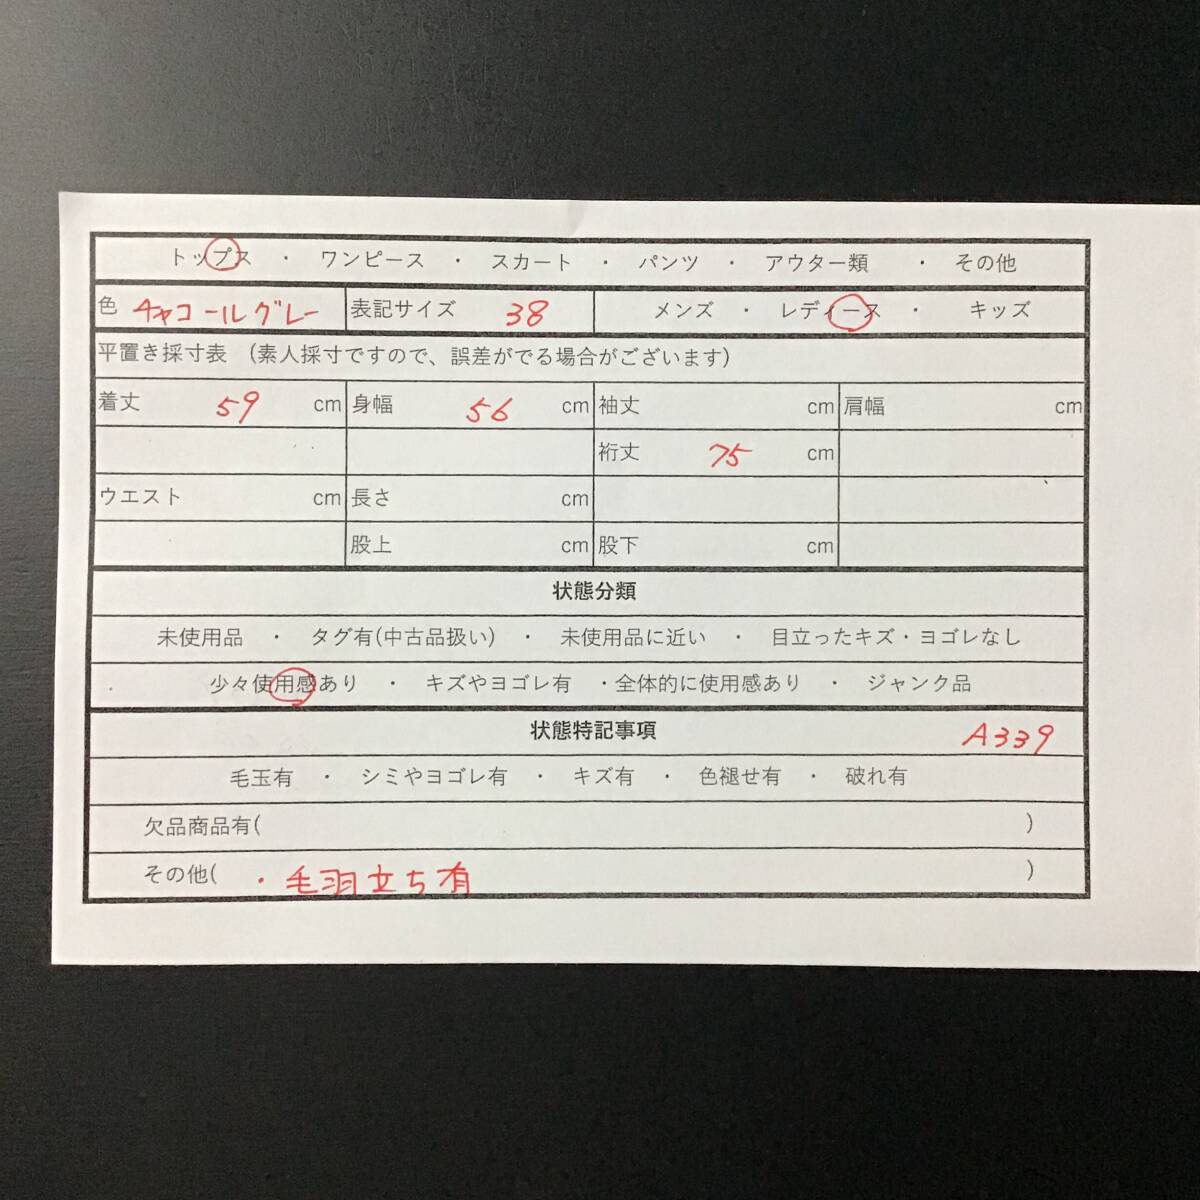 トップス ・ ワンピース ・ スカート ・ パンツ ・ アウター類 ・ その他
色 チャコールグレー 表記サイズ 38 メンズ ・ レディース ・ キッズ
平置き採寸表 (素人採寸ですので、誤差がでる場合がございます)
着丈 59 cm 身幅 56 cm 袖丈 cm 肩幅 cm
裄丈 75 cm
ウエスト cm 長さ cm
股上 cm 股下 cm
状態分類
未使用品 ・ タグ有(中古品扱い) ・ 未使用品に近い ・ 目立ったキズ・ヨゴレなし
少々使用感あり ・ キズやヨゴレ有 ・全体的に使用感あり ・ ジャンク品
状態特記事項 A339
毛玉有 ・ シミやヨゴレ有 ・ キズ有 ・ 色褪せ有 ・ 破れ有
欠品商品有( )
その他( ・毛羽立ち有 )